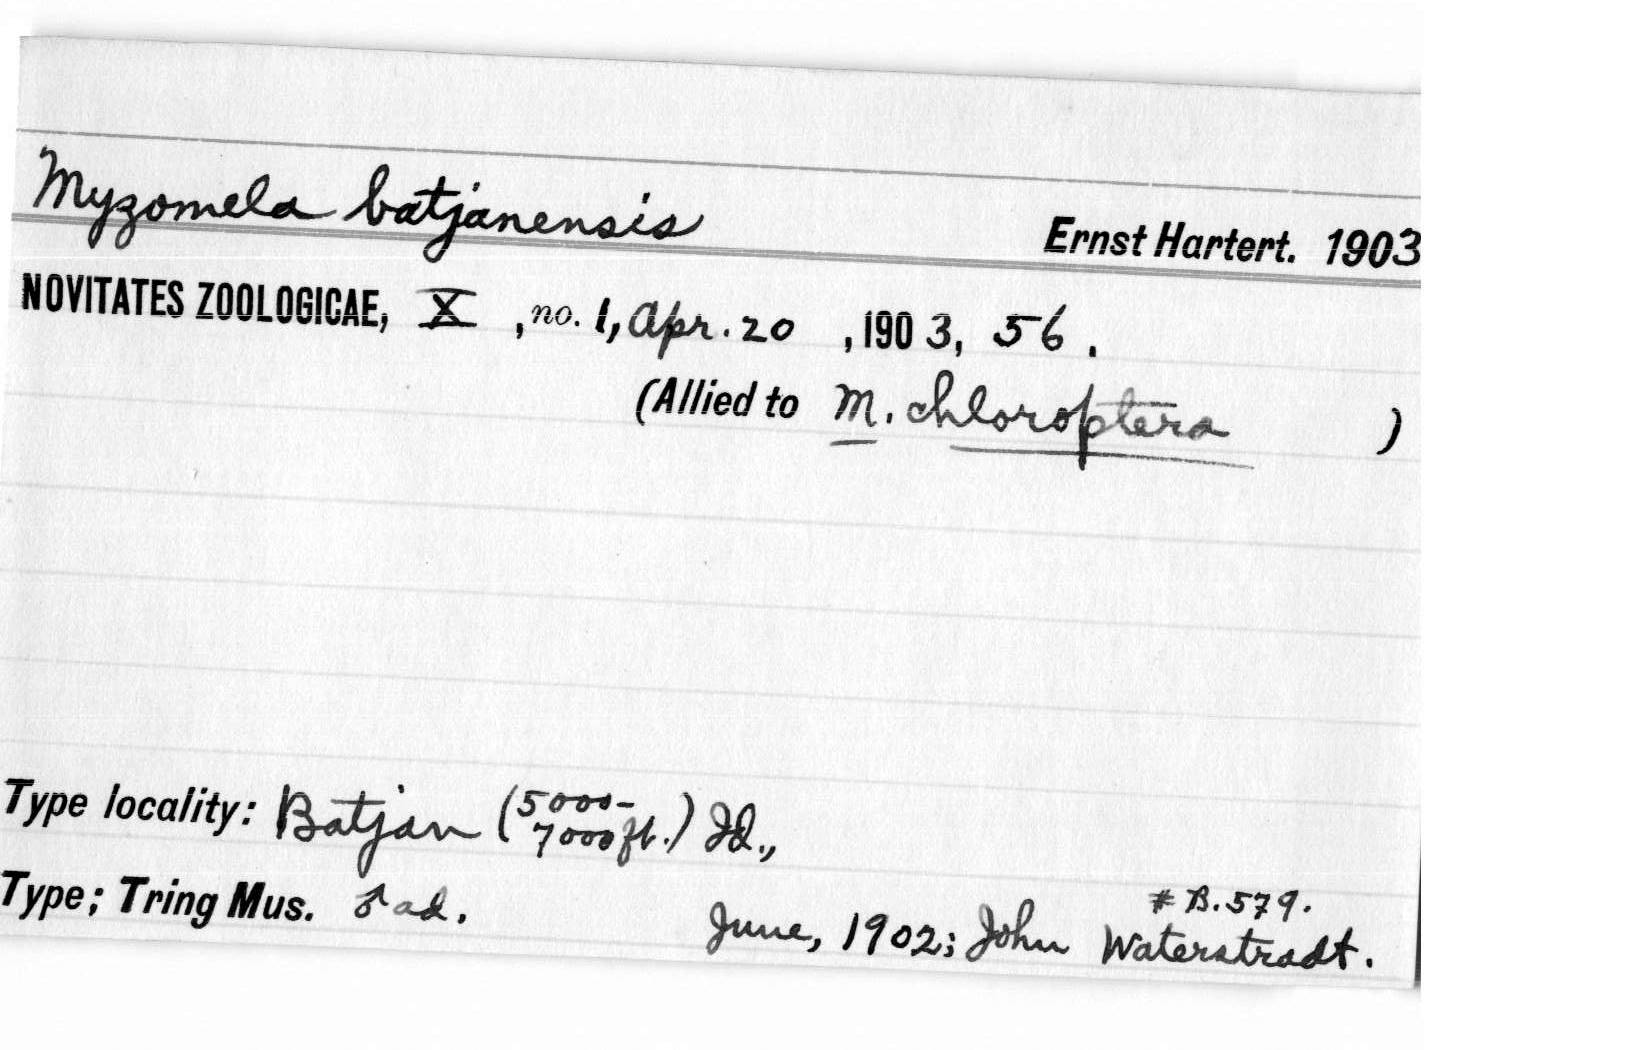 Myzomela batjanensis
Ernst Hartert. 1903
NOVITATES ZOOLOGICAE, X, no. 1, Apr. 20, 1903, 56.
(Allied to M. chloroptera)
Type locality: Batjan (5000-7000 ft.) Id.,
Type; Tring Mus. ♂ ad.
# B.579.
June, 1902; John Waterstradt.